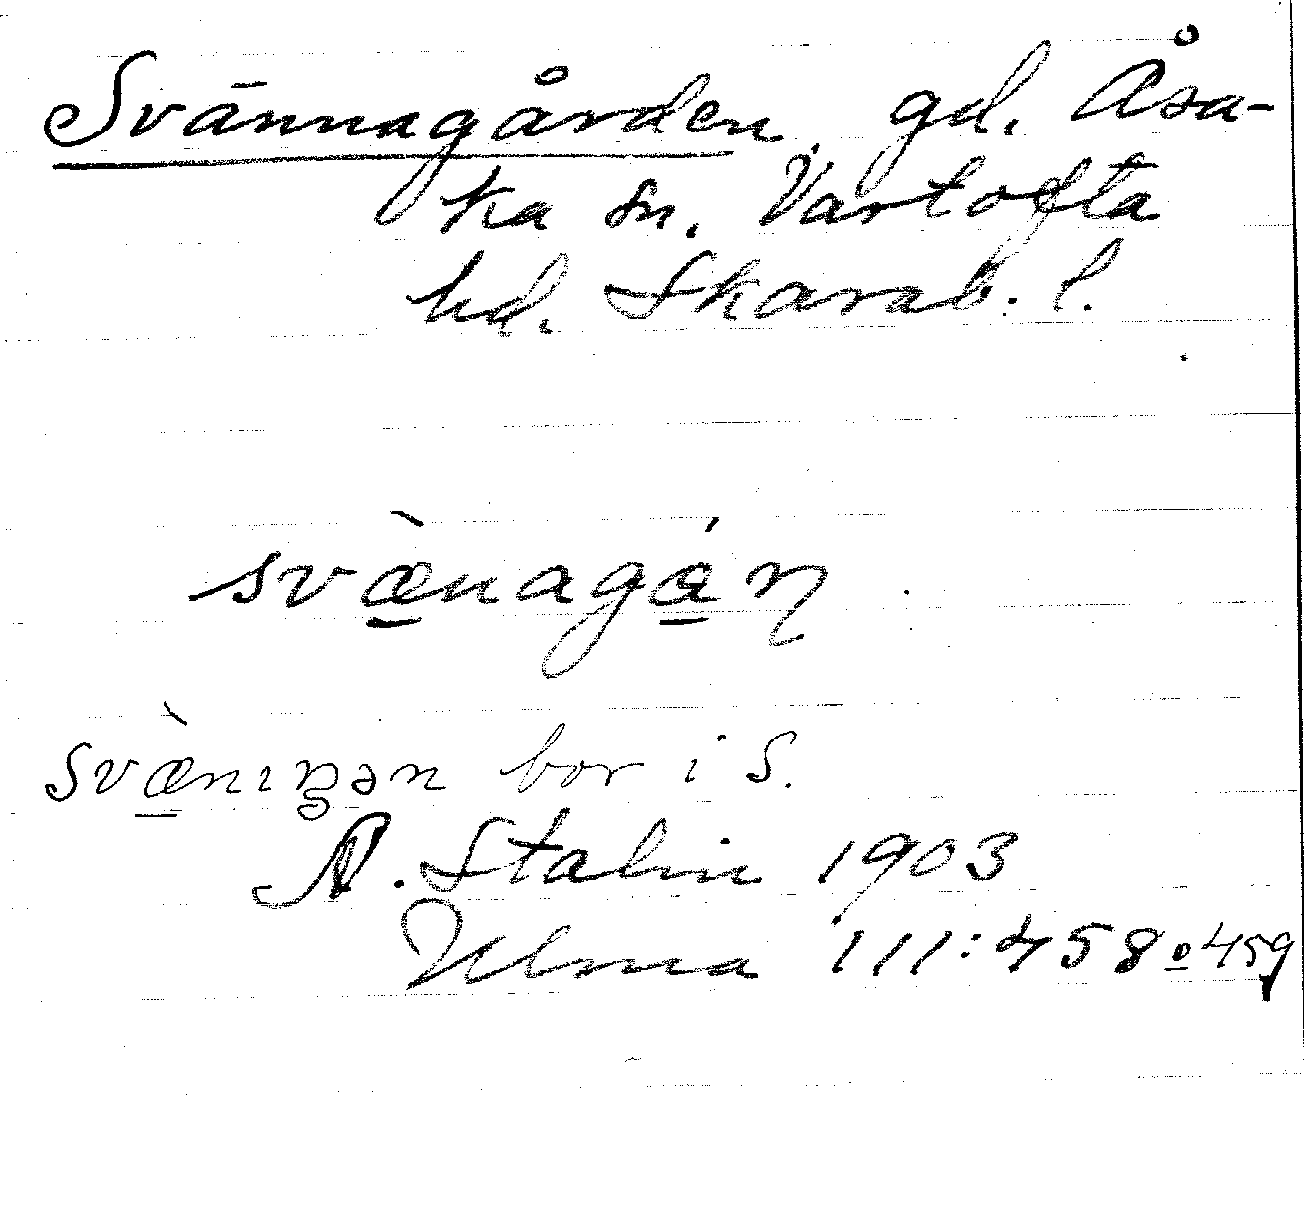 Svännagården gd. Åsa-
ka sn. Vartofta
hd. Skarab. l.
svæ̠̀nagá̠ŋ
Svæ̠̀nɪŋən bor i S.
A. Stalin 1903
Ulma 111:458 o 459